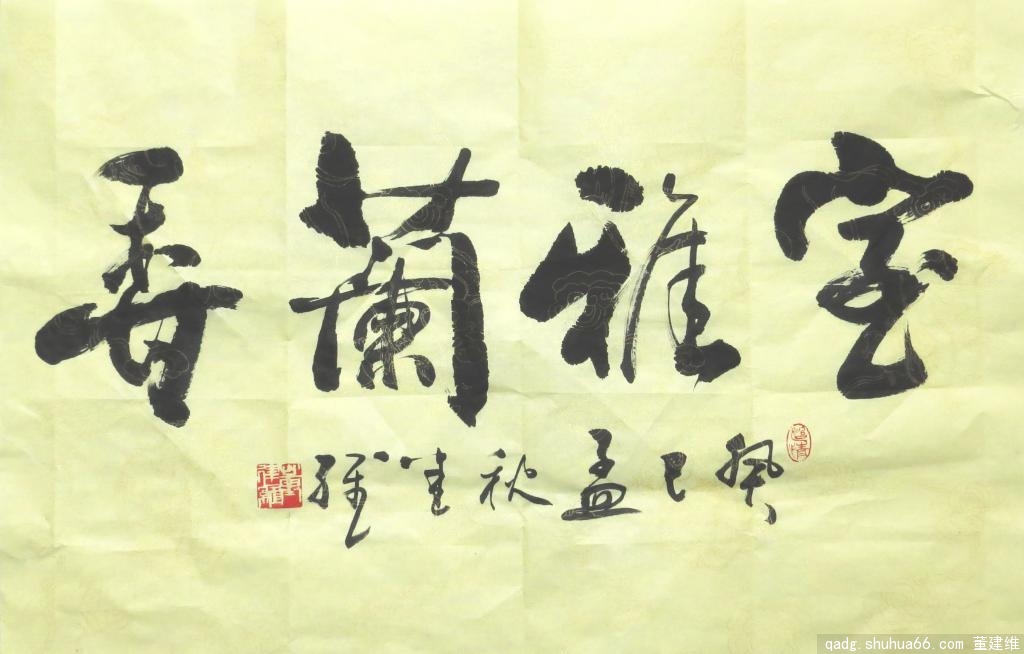 室雅蘭香
癸巳孟秋建維
qadg.shuhua66.com 董建维